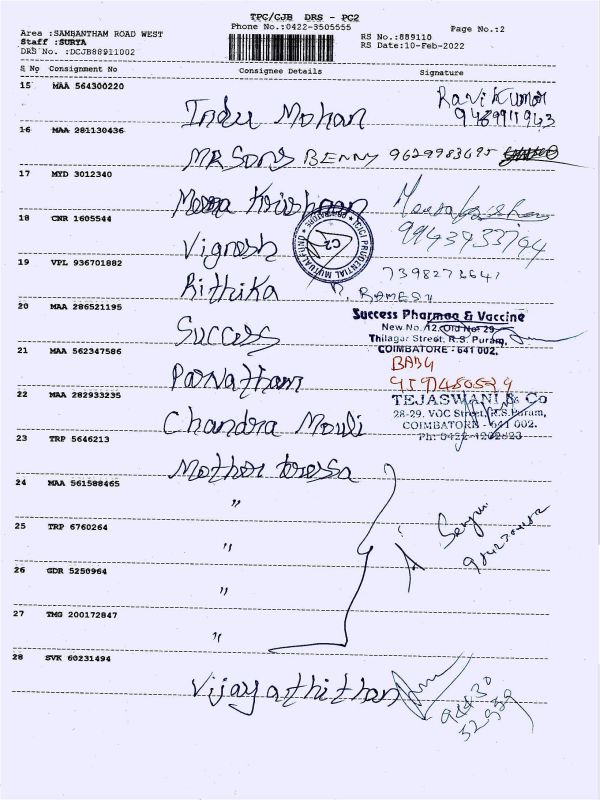 TPC/CJB DRS - PC2
Phone No.:0422-3505555
Page No.:2
Area :SAMBANTHAM ROAD WEST
Staff :SURYA
DRS No. :DCJB88911002
RS No.:889110
RS Date:10-Feb-2022
S No Consignment No Consignee Details Signature
15 MAA 564300220
Indu Mohan Ravi Kumar
9489911943
16 MAA 281130436
MR Sony BENNY 9629983695
17 MYD 3012340
Meera Krishnan
18 CNR 1605544
Vignesh 9943933744
ICICI PRUDENTIAL MUTUAL FUND
19 VPL 936701882
Rithika 7398273641
R. RAMESH
20 MAA 286521195
Success
Success Pharmaa & Vaccine
New No.12, Old No 29,
Thilagar Street, R.S. Puram,
COIMBATORE - 641 002.
21 MAA 562347586
Parvatham BABU
22 MAA 282933235
Chandra Mouli
TEJASWANI & Co
28-29. VOC Street, R.S.Puram,
COIMBATORE - 641 002.
23 TRP 5646213
Mother teresa
24 MAA 561588465
"
25 TRP 6760264
"
26 GDR 5250964
"
27 TMG 200172847
"
28 SVK 60231494
Vijay athithan 94430
52939